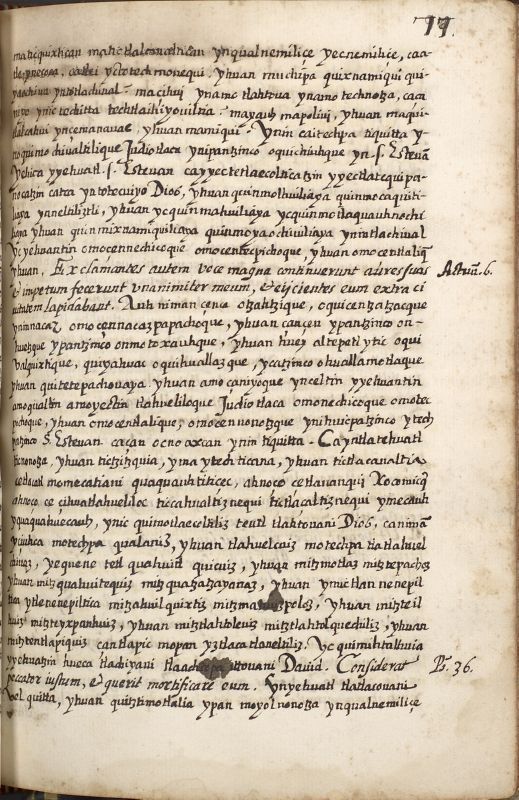 77.
maticquixtican matictlalcanaltican ynqualnemiliçe yecnemiliçe, caa-
yhuan muchipa quixnamiqui qui-
yaochiva macihui ynamo tlahtova ynamo technotza, çan
ynic techitta techtlaihiyoviltia: mapolivi, yhuan maqui-
yncemanavac, yhuan mamiqui. Ynin caitechpa tiquitta y-
noquimochivaltilique Judiotlaca ynipantzinco oquichiuhque yn .S. Estevā
Ychica yyehuatl .S. Estevan cayyectetlacolicatzin yyectlatequipa-
nocatzin catca yntotecuiyo Dios, yhuan quinmolhuiliaya quinmocaquiti-
liaya ynneltiliztli, yhuan ycquinmahuiliaya ycquinmotlaquauhnochi
liaya yhuan quinmixnamiquiliaya quinmoyaochiuiliaya ynintlachiual
Yc yehuantin omocennechicoque omocentepichoque, yhuan omocentlaliq̄
yhuan, Exclamantes autem voce magna continuerunt aures suas
& impetum fecerunt vnanimiter in eum, & eijcientes eum extra ci
uitatem lapidabant. Auh niman çenca otzahtzique, oquicentzatzacque
yninnacaz omocennacazpapachoque, yhuan cançen ypantzinco on-
huetzque ypantzinco onmotoxauhque, yhuan huey altepetl ytic oqui
valquixtique, quiyahuac oquihuallazque, ycatzinco ohuallamotlaque
yhuan quitetepachouaya. yhuan amo çaniyoque ynceltin yyehuantin
amoqualtin amoyectin tlahueliloque Judiotlaca omonechicoque omotec
pichoque, yhuan omocentlalique, omocennonotzque ynihuicpatzinco ytech
patzinco S. Estevan caçan ocno axcan ynin tiquitta. Cayntlatehuatl
ticnonotza, yhuan tictzitzquia, yma ytechticana, yhuan tictlacanaltia
cetlacatl momecatiani quaquauhtiticec, ahnoço cetlavanqui Xocomicq̄
ahnoço ce çihuatlahueliloc ticcahualtiznequi tictlacaltiznequi ymecauh
yquaquahuecauh, ynic quimotlaecoltiliz teutl tlahtovani Dios, caniman
yciuhca motechpa qualaniz, yhuan tlahuelcuiz motechpa tlatlahuel
chivaz, yequene tetl quahuitl quicuiz, yhuan mitzmotlaz mitztepachoz
yhuan mitzquahuitequiz mitzquatzatzayanaz, yhuan ymictlan nenepil
tica ytlenenepiltica mitzahuilquixtiz yhuan mitzteil
huiz mitzteyxpanhuiz, yhuan mitztlahtoleuiz mitztlahtolquechiliz, yhuan
mitztentlapiquiz cantlapic mopan yztlacatlaneltiliz. Yc quimihtalhuia
yyehuatzin hueca tlachiyani tlahtovani David. Considerat
peccator iustum, & querit mortificare eum. Ynyehuatl tlatlacovani
vel quitta, yhuan quitztimotlalia ypan moyolnonotza ynqualnemiliçe
Actuū. 6.
Ps. 36.